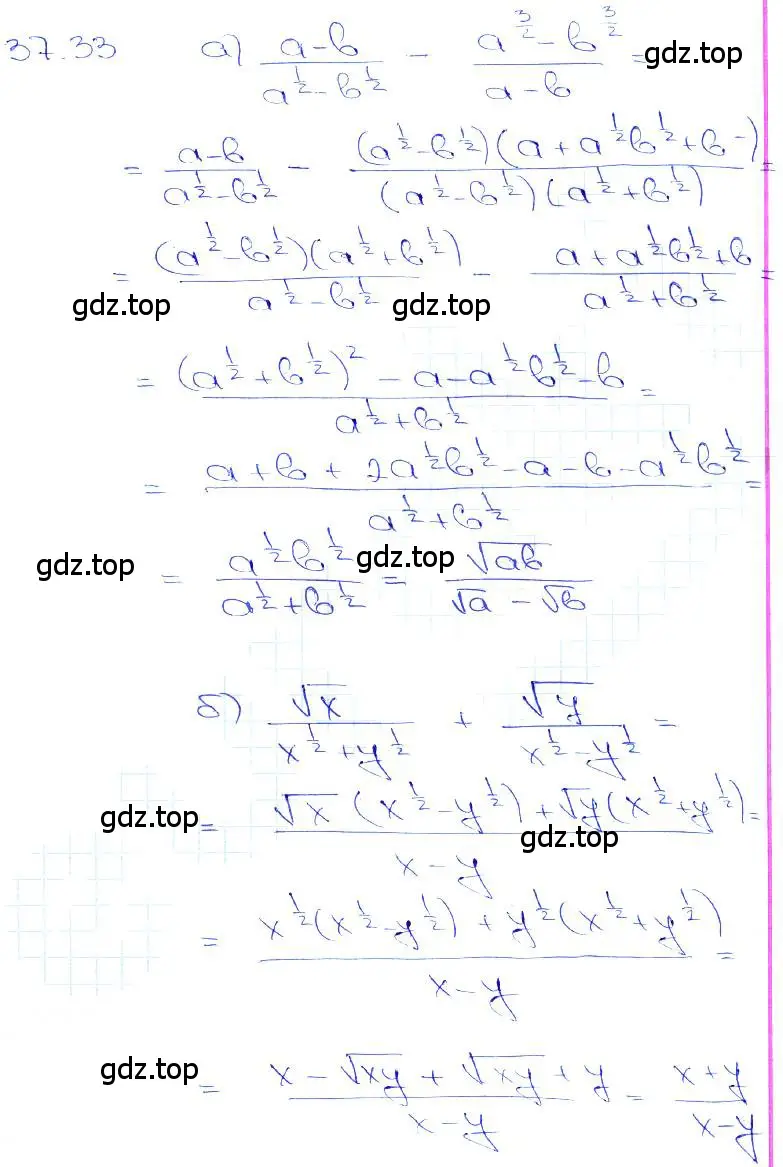 37.33 а) (a-b)/(a^{1/2}-b^{1/2}) - (a^{3/2}-b^{3/2})/(a-b) =
gdz.top
= (a-b)/(a^{1/2}-b^{1/2}) - ((a^{1/2}-b^{1/2})(a+a^{1/2}b^{1/2}+b))/((a^{1/2}-b^{1/2})(a^{1/2}+b^{1/2})) =
= ((a^{1/2}-b^{1/2})(a^{1/2}+b^{1/2}))/(a^{1/2}-b^{1/2}) - (a+a^{1/2}b^{1/2}+b)/(a^{1/2}+b^{1/2}) =
gdz.top gdz.top
= ((a^{1/2}+b^{1/2})^2 - a - a^{1/2}b^{1/2} - b)/(a^{1/2}+b^{1/2}) =
= (a+b+2a^{1/2}b^{1/2}-a-b-a^{1/2}b^{1/2})/(a^{1/2}+b^{1/2}) =
gdz.top gdz.top
= (a^{1/2}b^{1/2})/(a^{1/2}+b^{1/2}) = √(ab)/(√a - √b)
б) √x/(x^{1/2}+y^{1/2}) + √y/(x^{1/2}-y^{1/2}) =
gdz.top
= (√x(x^{1/2}-y^{1/2})+√y(x^{1/2}+y^{1/2}))/(x-y) =
gdz.top
= (x^{1/2}(x^{1/2}-y^{1/2})+y^{1/2}(x^{1/2}+y^{1/2}))/(x-y) =
gdz.top
= (x-√(xy)+√(xy)+y)/(x-y) = (x+y)/(x-y)